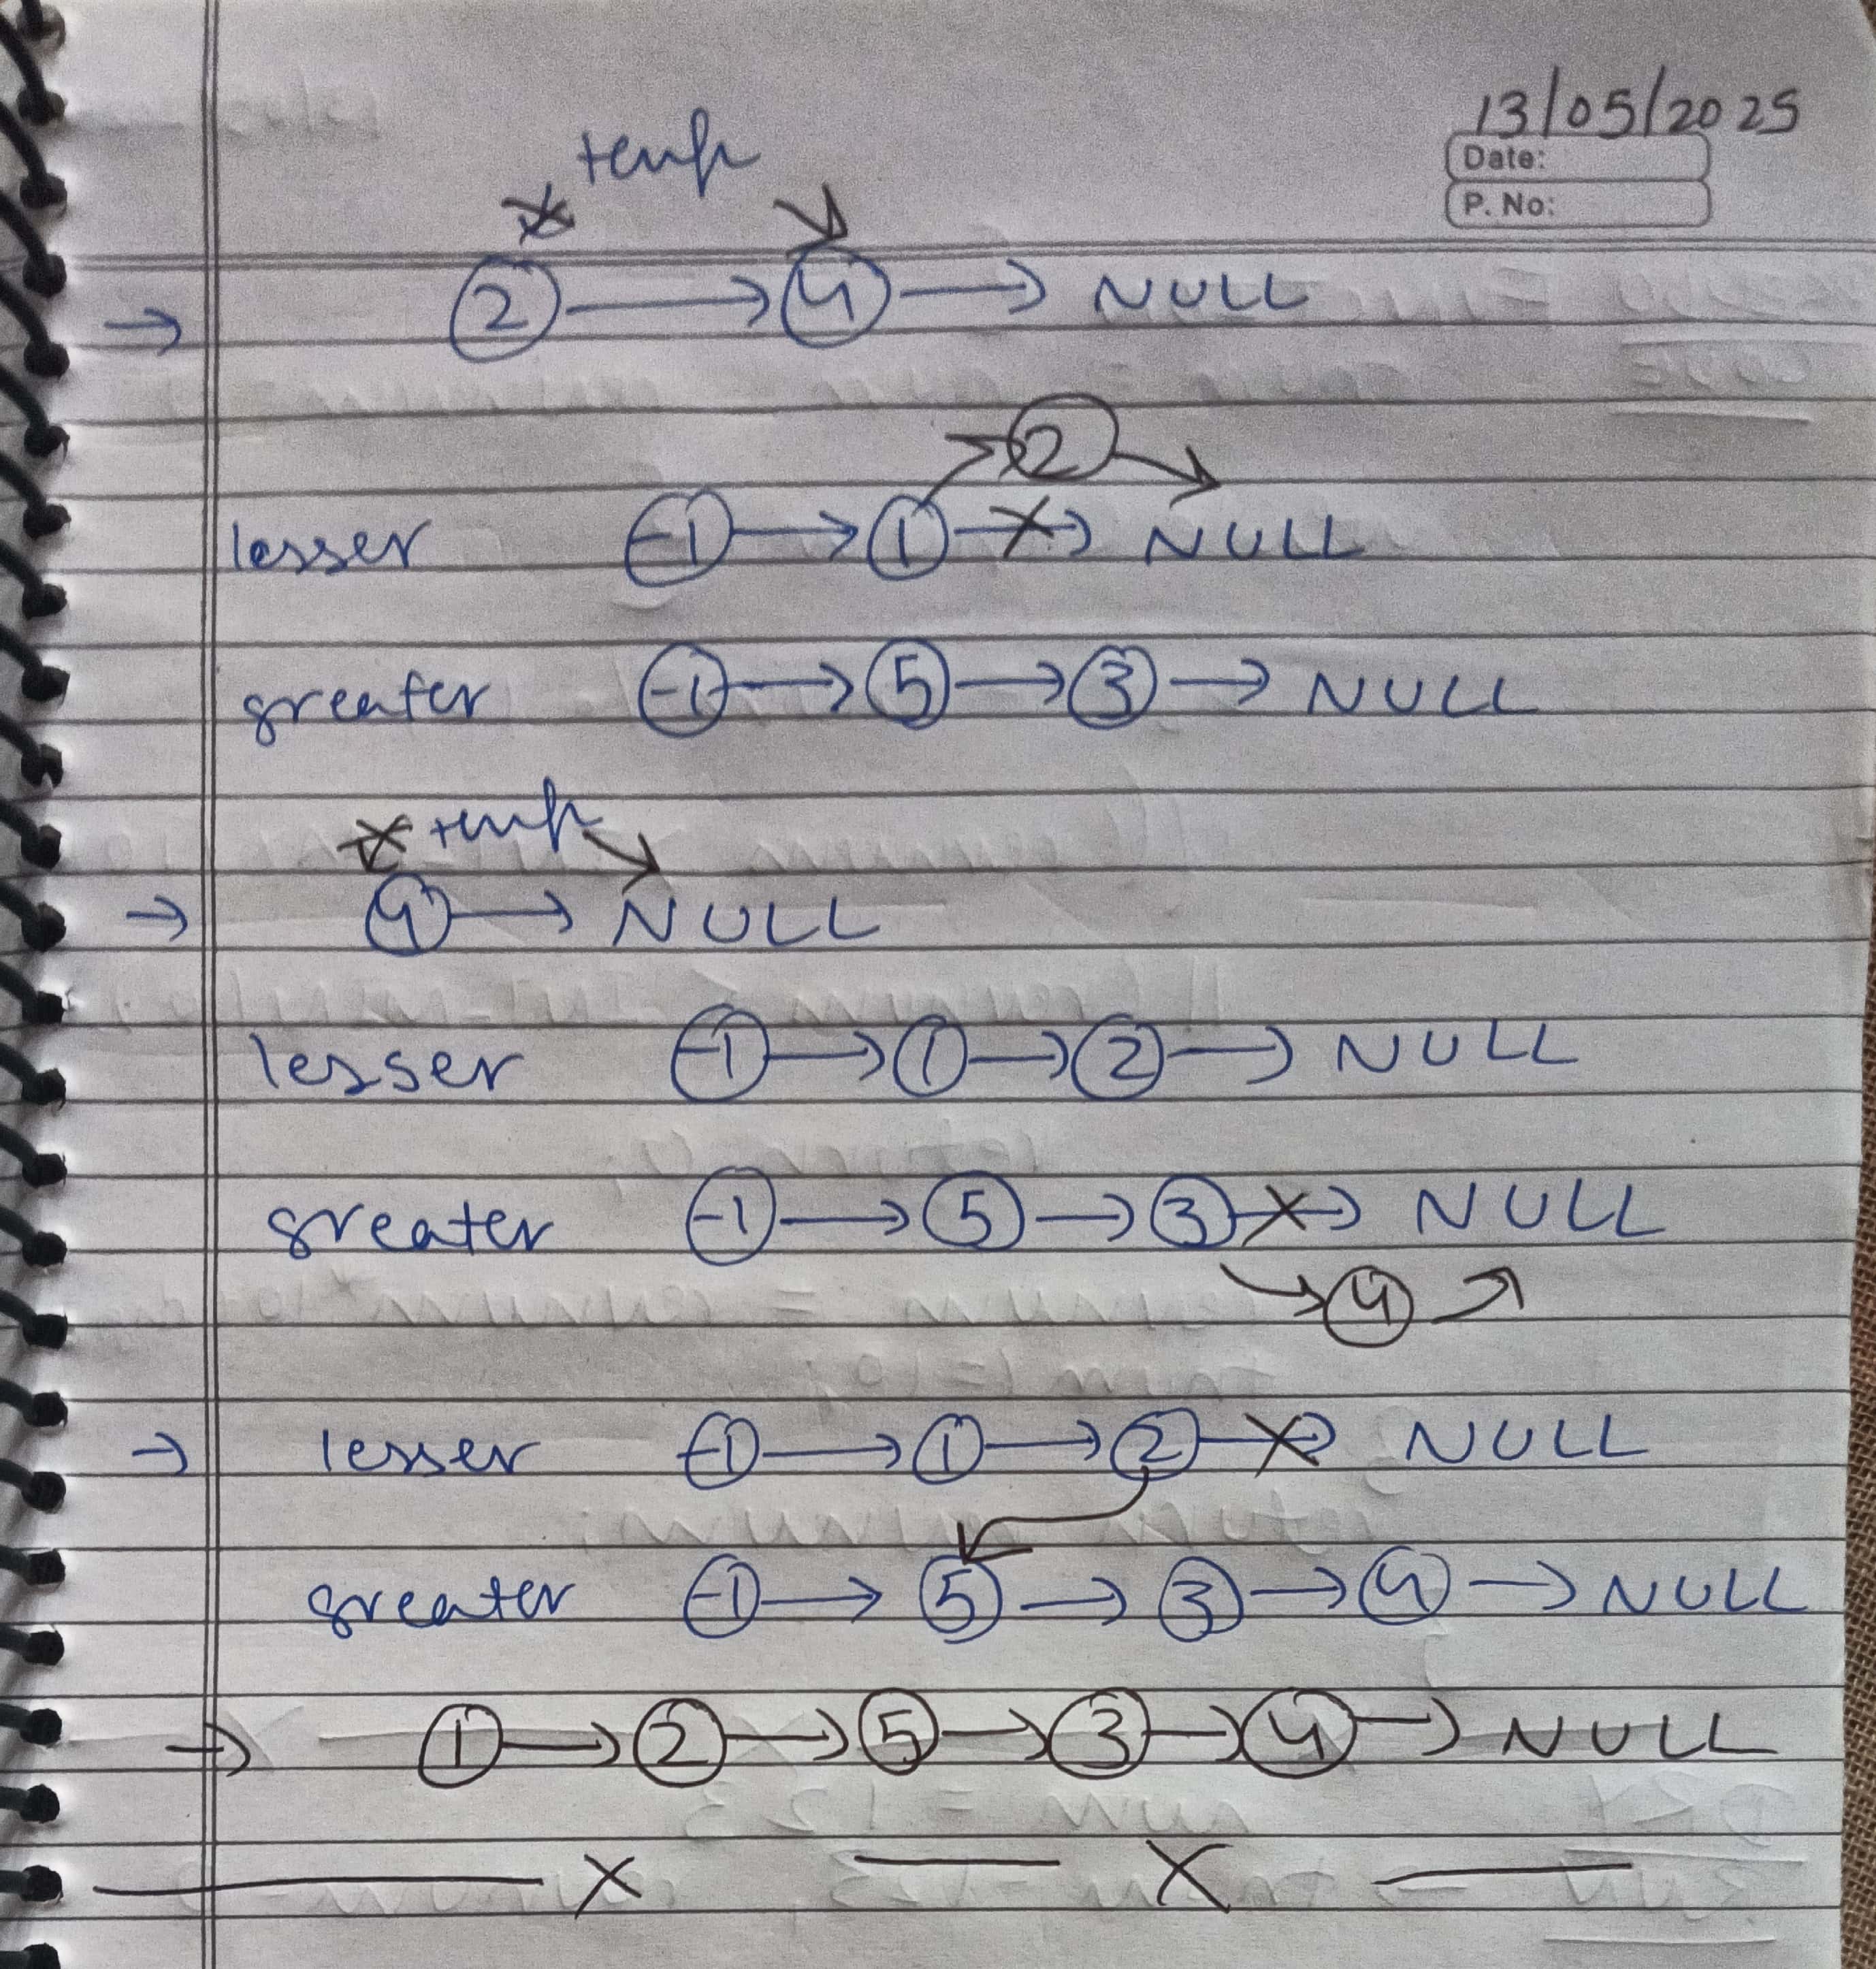 13/05/2025
Date:
P. No:
temp
→ 2 → 4 → NULL
2
lesser -1 → 1 → NULL
greater -1 → 5 → 3 → NULL
temp
→ 4 → NULL
lesser -1 → 1 → 2 → NULL
greater -1 → 5 → 3 → NULL
4
→ lesser -1 → 1 → 2 → NULL
greater -1 → 5 → 3 → 4 → NULL
→ 1 → 2 → 5 → 3 → 4 → NULL
— X — X —